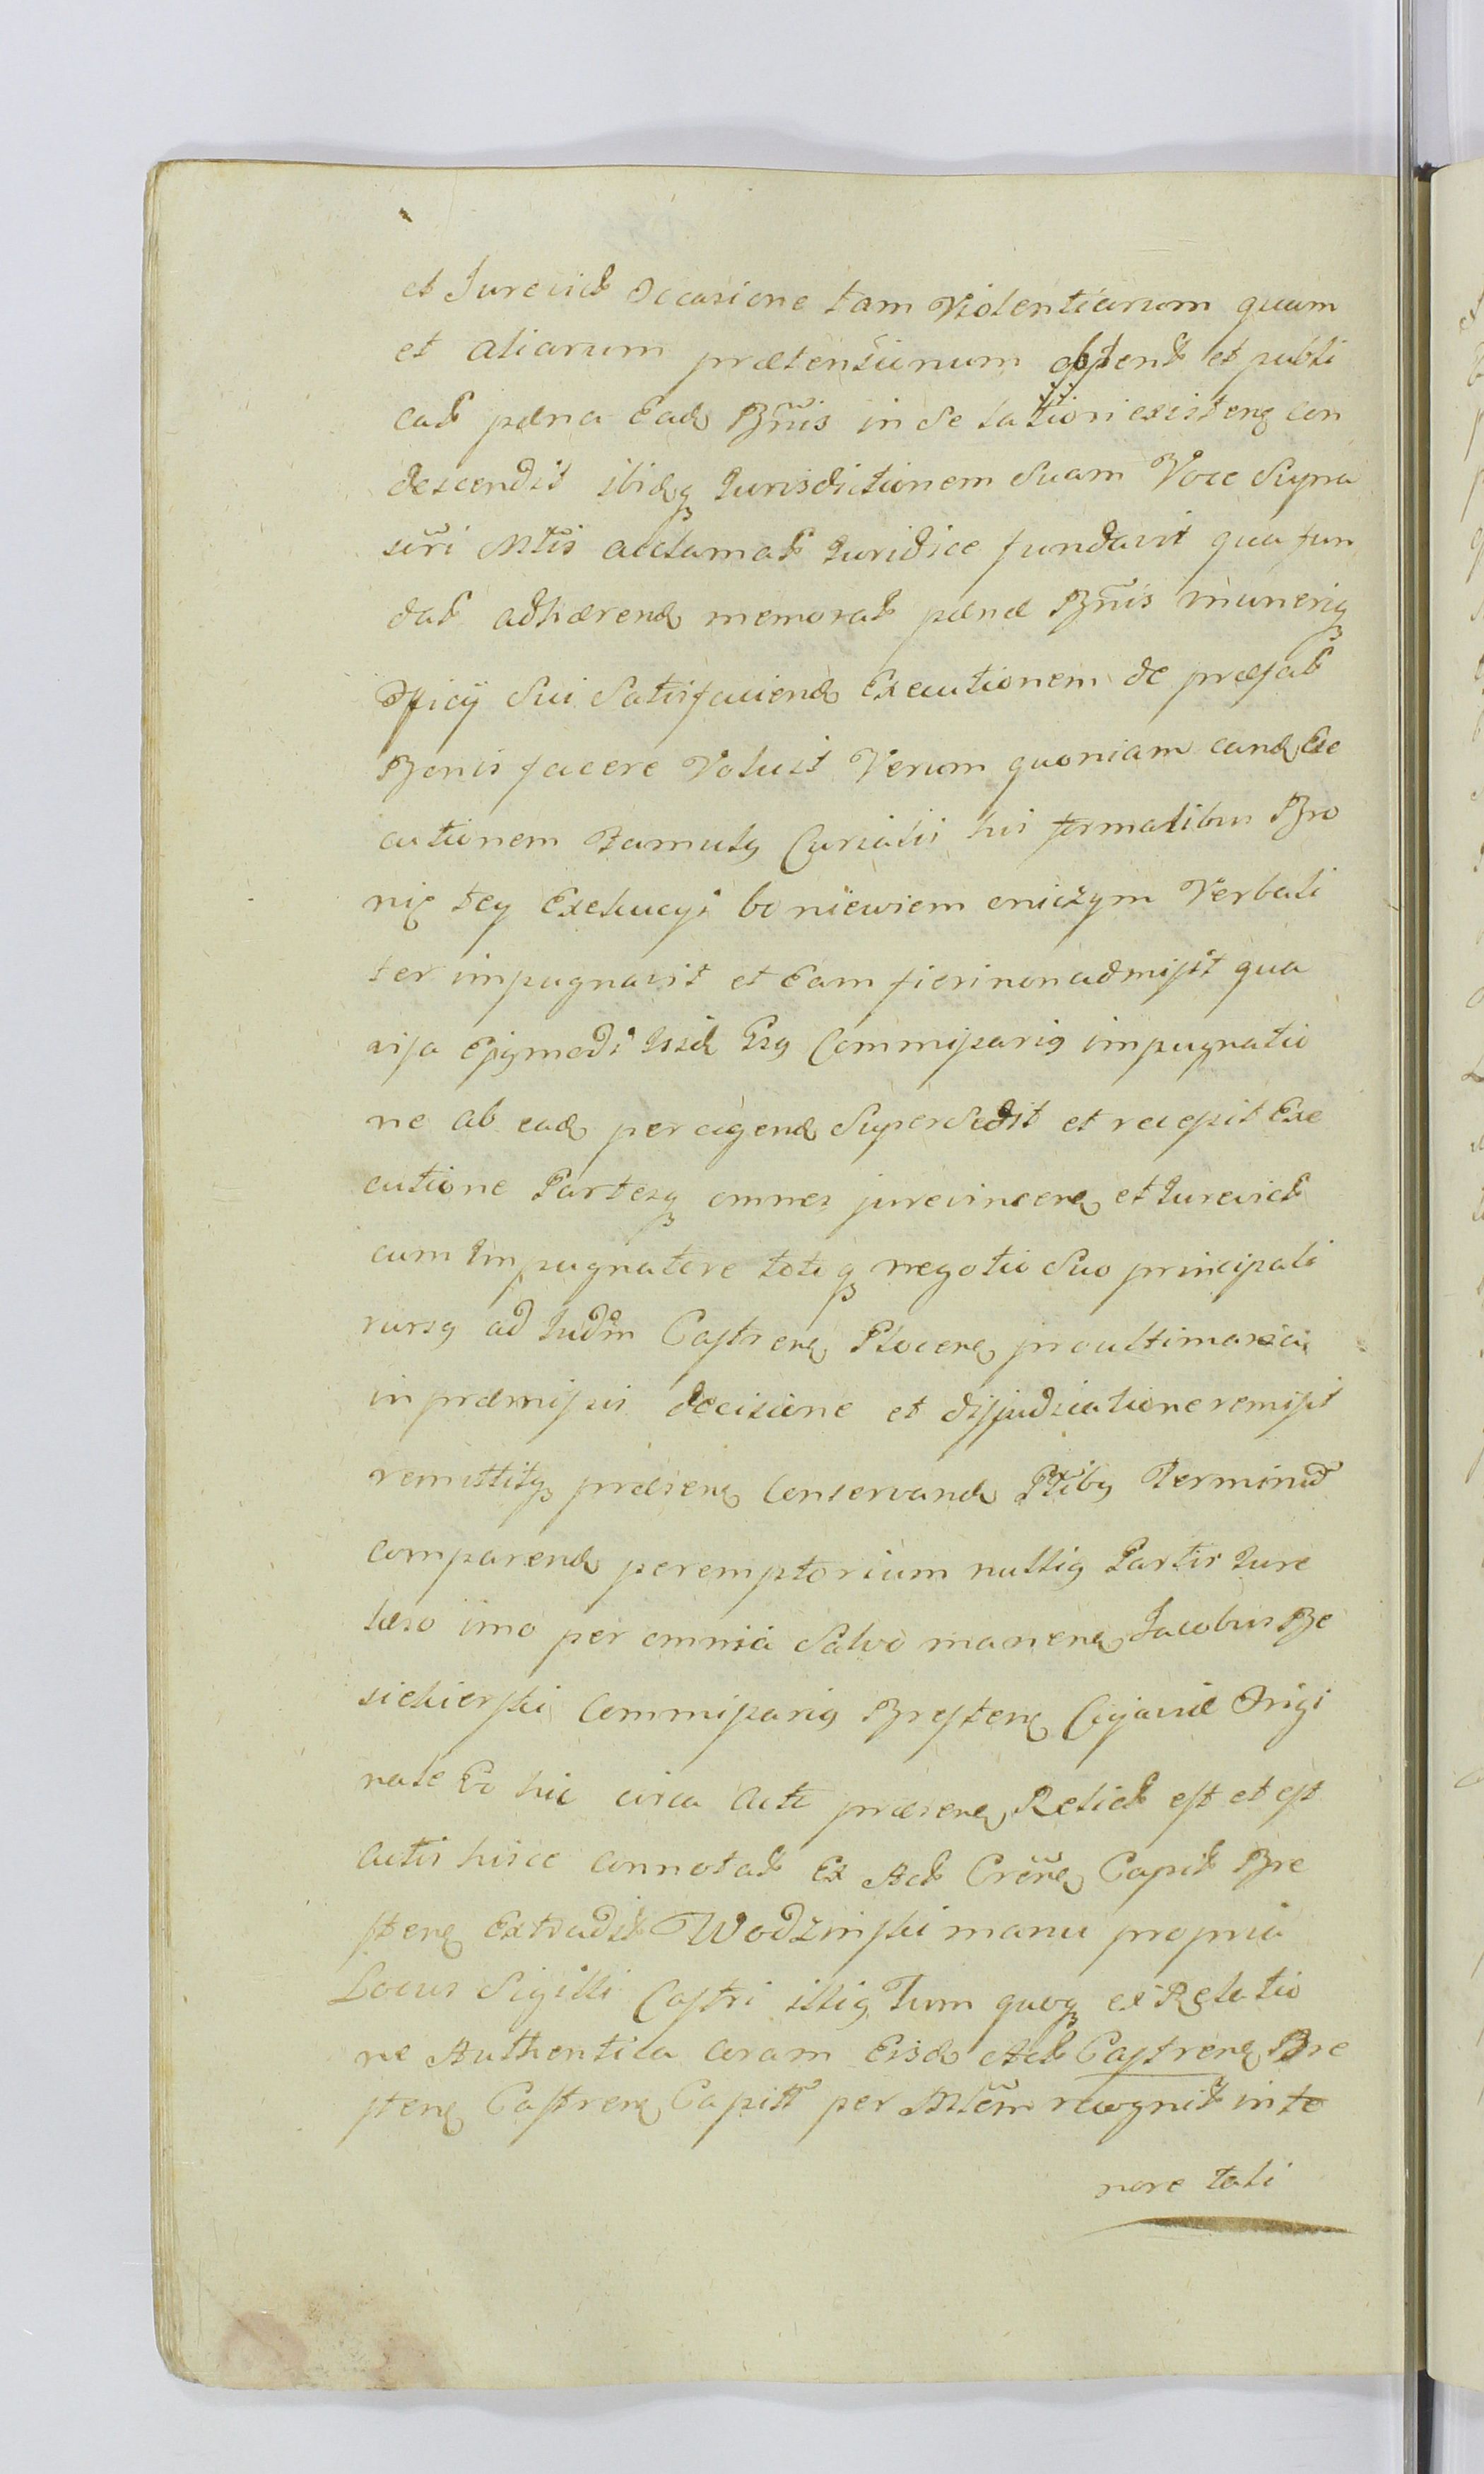 et Jurevict Occasione tam Violentiarum quam
et aliarum prætensionum obtent et publi
cat pæna Ead Bñis in se latiori existen con
descendit ibidq Jurisdictionem Suam Voce Syna
sŭri Mtis acclamat Juridice fundavit qua fun
dat adhærend memorat pænæ Bñis munerisq
Officij Sui Satisfaciend Executionem de præfat
Bonis facere Voluit Verum quoniam eand Exe
cutionem Famulus Curialis his formalibus Bro
nię tey Exekucyi bo niewiem oniczym Verbali
ter impugnavit et Eam fieri non admisit qua
visa Commissarius impugnatio
ne ab ead peragend Supersedit et recepit Exe
cutione Partesq omnes jurevincen et Jurevict
cum Impugnatore totoq negotio Suo principali
rursus ad Judm Castren Plocen pro ultimaria
in præmissis decisione et disjudicatione remisit
remittitq præsen Conservand Ptibus Terminū
comparend peremptorium nullius Partis Jure
læso imo per omnia Salvo manen Jacobus Be
siekierski Commissarius Bresten Cujaviæ Origi
nale Eo hic circa Acta præsen Relict est et est
Actis hisce connotat Ex Act Crẽn Capit Bre
sten Extradit Wodzinski manu propria
Locus Sigilli Castri illius Tum quoq ex Relatio
ne Authentica coram Eisd Act Castren Bre
sten Castren Capitł per Mlem recognit in te
nore tali